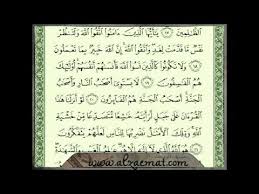 ٱلظَّٰلِمِينَ ١٧ يَٰٓأَيُّهَا ٱلَّذِينَ ءَامَنُوا۟ ٱتَّقُوا۟ ٱللَّهَ وَلْتَنظُرْ
نَفْسٌ مَّا قَدَّمَتْ لِغَدٍ وَٱتَّقُوا۟ ٱللَّهَ إِنَّ ٱللَّهَ خَبِيرٌۢ بِمَا تَعْمَلُونَ
١٨ وَلَا تَكُونُوا۟ كَٱلَّذِينَ نَسُوا۟ ٱللَّهَ فَأَنسَىٰهُمْ أَنفُسَهُمْ أُو۟لَٰٓئِكَ
هُمُ ٱلْفَٰسِقُونَ ١٩ لَا يَسْتَوِىٓ أَصْحَٰبُ ٱلنَّارِ وَأَصْحَٰبُ
ٱلْجَنَّةِ أَصْحَٰبُ ٱلْجَنَّةِ هُمُ ٱلْفَآئِزُونَ ٢٠ لَوْ أَنزَلْنَا هَٰذَا
ٱلْقُرْءَانَ عَلَىٰ جَبَلٍ لَّرَأَيْتَهُۥ خَٰشِعًا مُّتَصَدِّعًا مِّنْ خَشْيَةِ
ٱللَّهِ وَتِلْكَ ٱلْأَمْثَٰلُ نَضْرِبُهَا لِلنَّاسِ لَعَلَّهُمْ يَتَفَكَّرُونَ
وَٱلشَّهَٰدَةِ
www.alzaemat.com